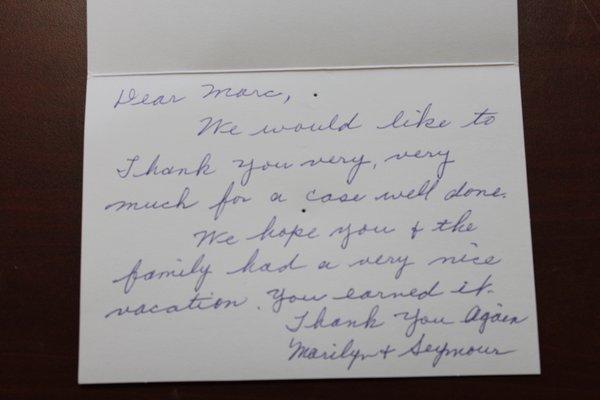 Dear Marc,
We would like to
Thank you very, very
much for a case well done.
We hope you & the
family had a very nice
vacation. You earned it.
Thank You Again
Marilyn & Seymour